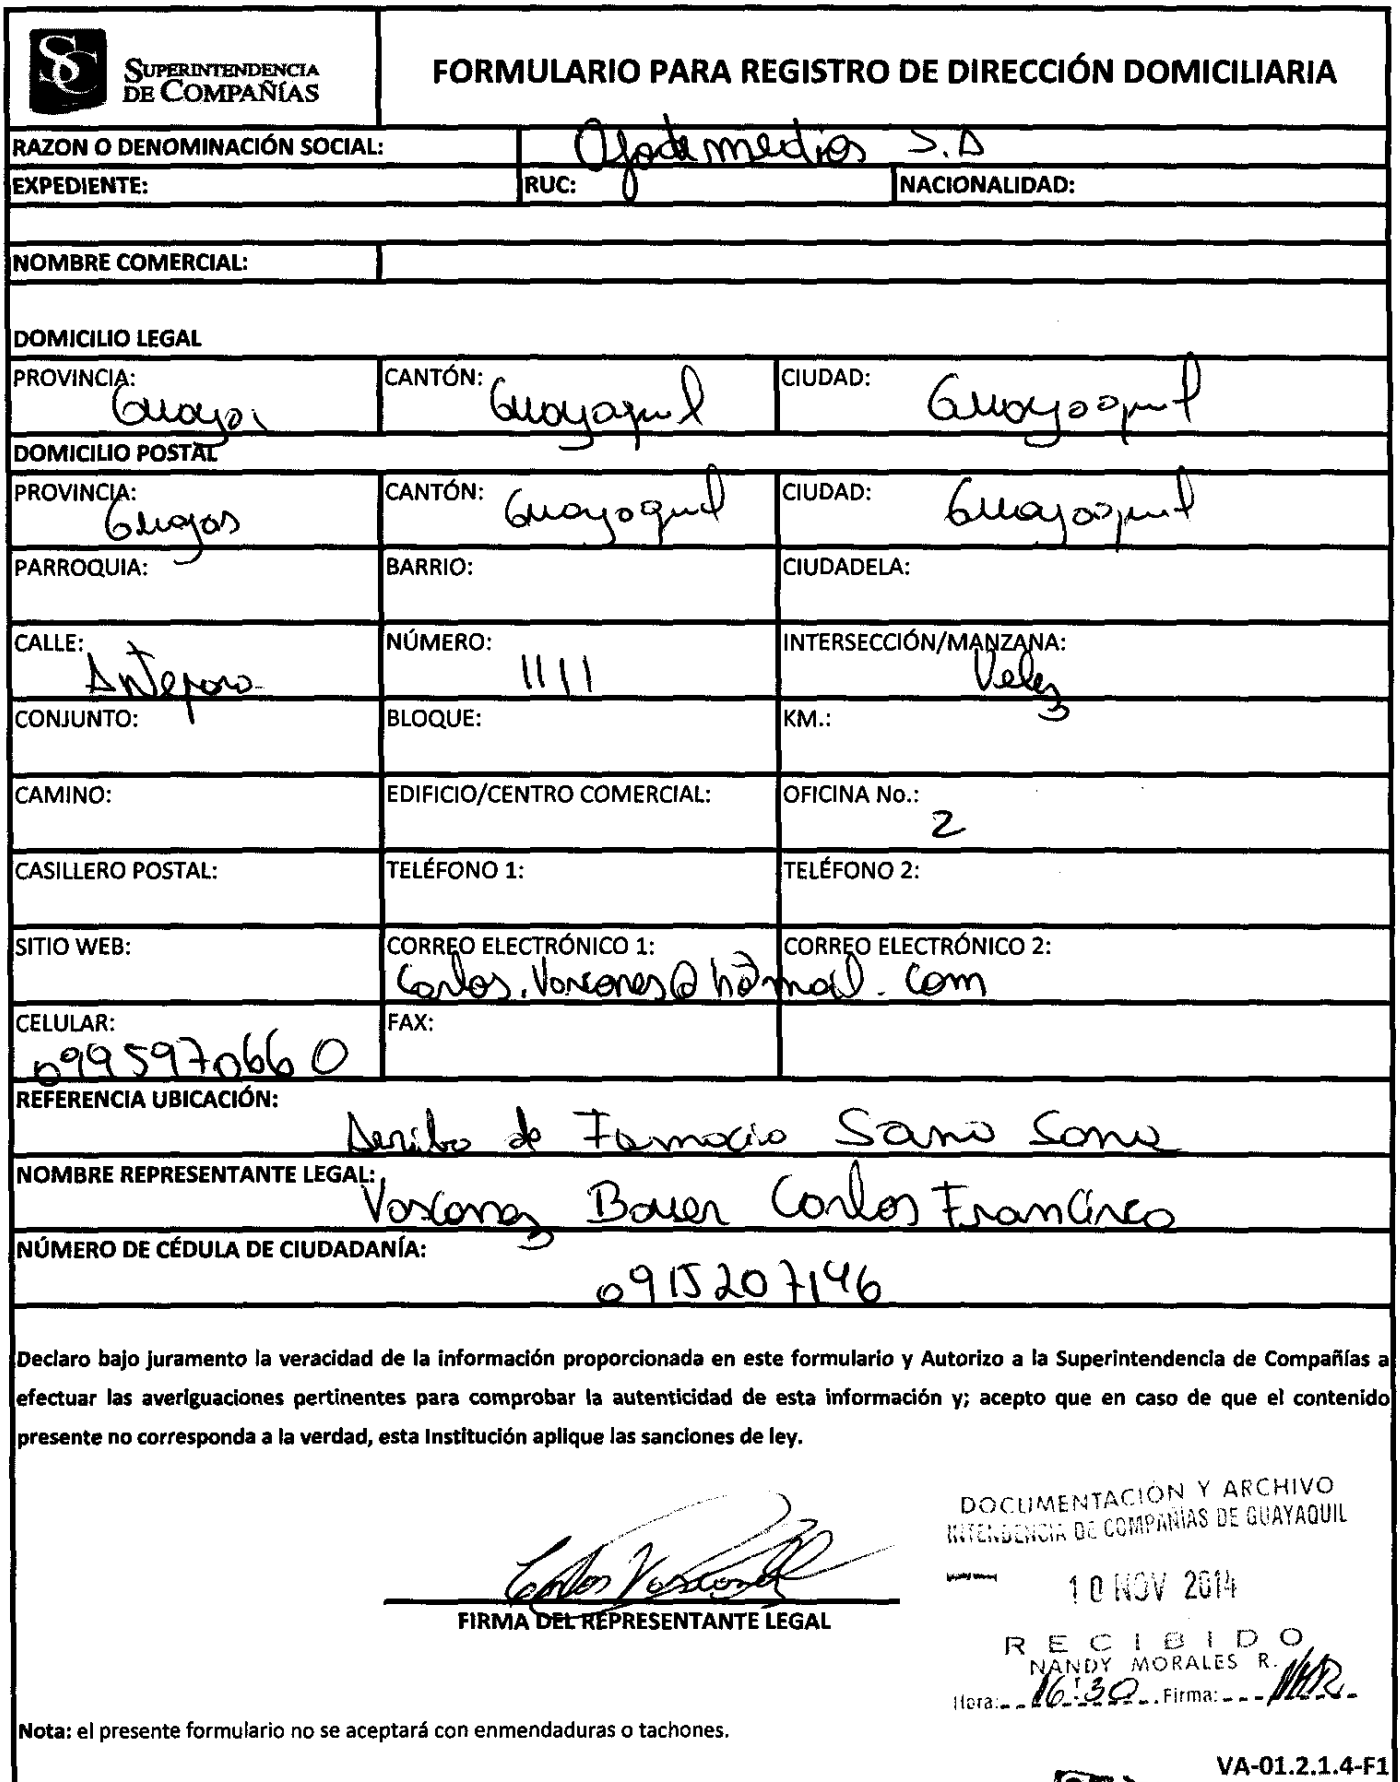 SC
SUPERINTENDENCIA
DE COMPAÑÍAS
FORMULARIO PARA REGISTRO DE DIRECCIÓN DOMICILIARIA
RAZON O DENOMINACIÓN SOCIAL: Ojodemedios S.A
EXPEDIENTE: RUC: NACIONALIDAD:
NOMBRE COMERCIAL:
DOMICILIO LEGAL
PROVINCIA: Guayas CANTÓN: Guayaquil CIUDAD: Guayaquil
DOMICILIO POSTAL
PROVINCIA: Guayas CANTÓN: Guayaquil CIUDAD: Guayaquil
PARROQUIA: BARRIO: CIUDADELA:
CALLE: Antepara NÚMERO: 1111 INTERSECCIÓN/MANZANA: Velez
CONJUNTO: BLOQUE: KM.:
CAMINO: EDIFICIO/CENTRO COMERCIAL: OFICINA No.: 2
CASILLERO POSTAL: TELÉFONO 1: TELÉFONO 2:
SITIO WEB: CORREO ELECTRÓNICO 1: CORREO ELECTRÓNICO 2:
Carlos.Vascones@hotmail.com
CELULAR: 0995970660 FAX:
REFERENCIA UBICACIÓN:
Arriba de Farmacia Sana Sana
NOMBRE REPRESENTANTE LEGAL: Vascones Bauer Carlos Francisco
NÚMERO DE CÉDULA DE CIUDADANÍA: 0915207146
Declaro bajo juramento la veracidad de la información proporcionada en este formulario y Autorizo a la Superintendencia de Compañías a
efectuar las averiguaciones pertinentes para comprobar la autenticidad de esta información y; acepto que en caso de que el contenido
presente no corresponda a la verdad, esta Institución aplique las sanciones de ley.
DOCUMENTACIÓN Y ARCHIVO
INTENDENCIA DE COMPAÑIAS DE GUAYAQUIL
10 NOV 2014
Carlos Vascones
FIRMA DEL REPRESENTANTE LEGAL
RECIBIDO
NANDY MORALES R.
Hora: 16:30 Firma:
Nota: el presente formulario no se aceptará con enmendaduras o tachones.
VA-01.2.1.4-F1